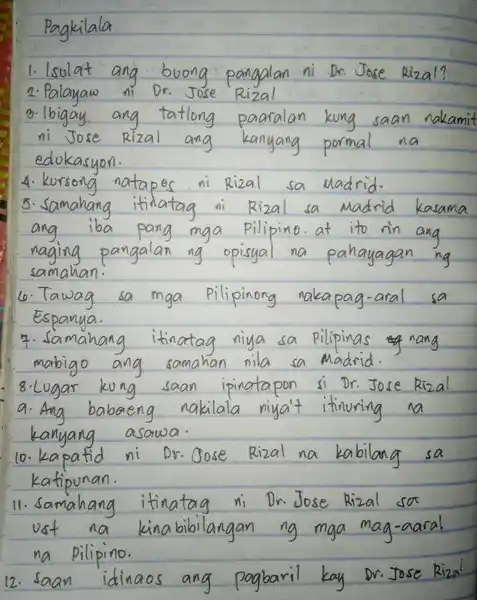 Pagkilala
1. Isulat ang buong pangalan ni Dr. Jose Rizal?
2. Palayaw ni Dr. Jose Rizal
3. Ibigay ang tatlong paaralan kung saan nakamit
ni Jose Rizal ang kanyang pormal na
edukasyon.
4. kursong natapos ni Rizal sa Madrid.
5. Samahang itinatag ni Rizal sa Madrid kasama
ang iba pang mga Pilipino. at ito rin ang
naging pangalan ng opisyal na pahayagan ng
samahan.
6. Tawag sa mga Pilipinong nakapag-aral sa
Espanya.
7. Samahang itinatag niya sa Pilipinas nang
mabigo ang samahan nila sa Madrid.
8. Lugar kung saan ipinatapon si Dr. Jose Rizal
9. Ang babaeng nakilala niya't itinuring na
kanyang asawa.
10. kapatid ni Dr. Jose Rizal na kabilang sa
katipunan.
11. Samahang itinatag ni Dr. Jose Rizal sa
ust na kinabibilangan ng mga mag-aaral
na Pilipino.
12. Saan idinaos ang pagbaril kay Dr. Jose Rizal